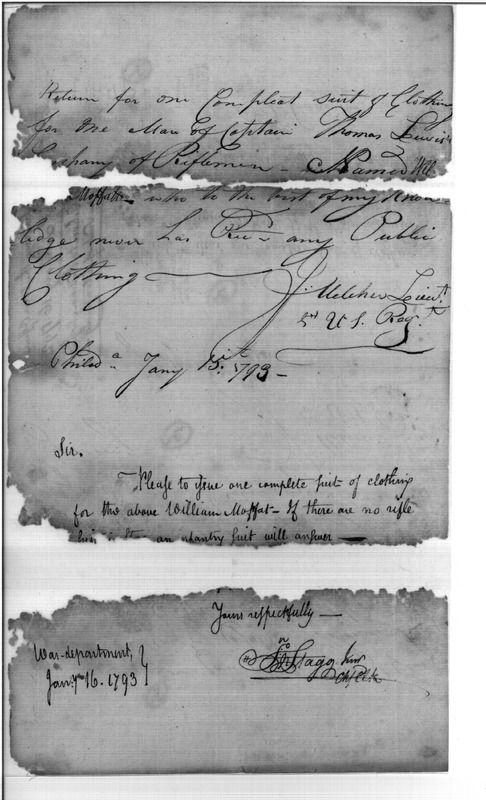 Return for one Compleat suit of Clothing
for one Man of Captain Thomas Lewis's
Company of Riflemen - Named Will
Moffat - who to the best of my know
ledge never has Recd any Public
Clothing
J. Melcher Lieut.
3d U S. Regt.
Philada. Jany 15th 1793 -
Sir.
Please to issue one complete suit of clothing
for the above William Moffat - If there are no rifle
an infantry suit will answer -
Yours respectfully -
War-department, }
Jany. 16. 1793 }
Jno Stagg Junr
Chf Clk